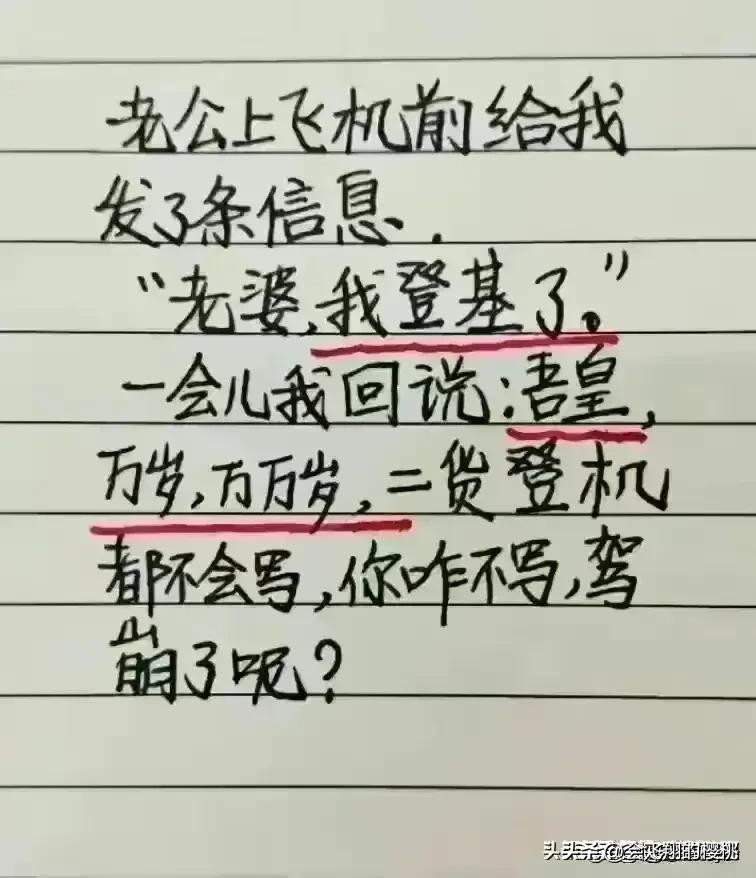 老公上飞机前给我
发了条信息.
“老婆,我登基了。”
一会儿我回说:吾皇,
万岁,万万岁,二货登机
都不会写,你咋不写,驾
崩了呢?
头条 @会飞翔的樱桃